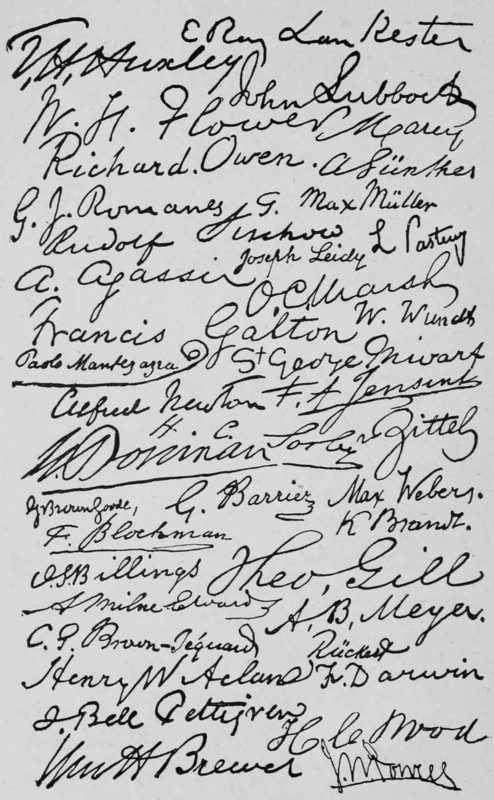 E Ray Lankester
T. H. Huxley
John Lubbock
W. H. Flower, Marey
Richard. Owen. A Günther
G. J. Romanes G. Max Müller
Rudolf Virchow L Pasteur
Joseph Leidy
A. Agassiz
O. C. Marsh
Francis Galton W. Wundt
Paolo Mantegazza St George Mivart
Alfred Newton F. A Jensink
H. C. Sorby Zittel
G Brown Goode, G. Barrier Max Weber.
F. Blochman K Brandt.
J. S. Billings Theo, Gill
A Milne Edwards A. B. Meyer.
C. E. Brown-Séquard Rückert
Henry W Acland Fr. Darwin
J. Bell Pettigrew
H C. Wood
Wm H Brewer